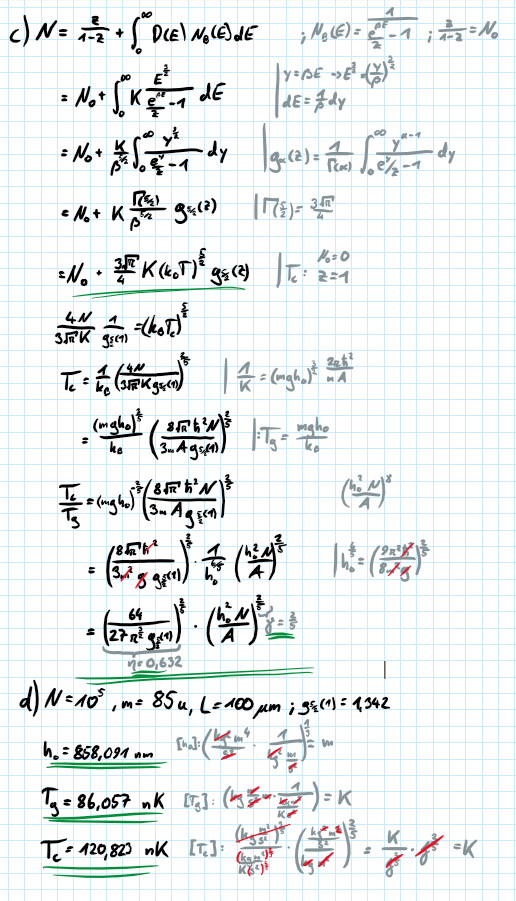 c) N = z/(1-z) + ∫₀^∞ D(E) N_B(E) dE ; N_B(E) = 1/(e^{βE}/z - 1) ; z/(1-z) = N₀
= N₀ + ∫₀^∞ K E^{3/2}/(e^{βE}/z - 1) dE | y = βE → E^{3/2} = (y/β)^{3/2}
dE = 1/β dy
= N₀ + K/β^{5/2} ∫₀^∞ y^{3/2}/(e^y/z - 1) dy | g_α(z) = 1/Γ(α) ∫₀^∞ y^{α-1}/(e^y/z - 1) dy
= N₀ + K Γ(5/2)/β^{5/2} g_{5/2}(z) | Γ(5/2) = 3√π/4
= N₀ + 3√π/4 K (k_B T)^{5/2} g_{5/2}(z) | T_c: N₀ = 0
z = 1
4N/(3√π K) 1/g_{5/2}(1) = (k_B T_c)^{5/2}
T_c = 1/k_B (4N/(3√π K g_{5/2}(1)))^{2/5} | 1/K = (mgh₀)^{3/2} 2πħ²/(mA)
= (mgh₀)^{3/5}/k_B (8√π ħ² N/(3mA g_{5/2}(1)))^{2/5} |: T_g = mgh₀/k_B
T_c/T_g = (mgh₀)^{-2/5} (8√π ħ² N/(3mA g_{5/2}(1)))^{2/5} (h₀² N/A)^γ
= (8√π ħ²/(3m² g g_{5/2}(1)))^{2/5} · 1/h₀^{6/5} (h₀² N/A)^{2/5} | h₀^{6/5} = (9π² ħ²/(8m² g))^{2/5}
= (64/(27π^{3/2} g_{5/2}(1)))^{2/5} · (h₀² N/A)^{2/5} γ = 2/5
η = 0,632
d) N = 10⁵ , m = 85u, L = 100 μm ; g_{5/2}(1) = 1,342
h₀ = 858,091 nm [h₀]: (kg² m⁴/s² · 1/(kg² m/s²))^{1/3} = m
T_g = 86,057 nK [T_g]: (kg m/s² · m · 1/(kg m²/(K s²))) = K
T_c = 120,823 nK [T_c]: (kg m²/s²)^{3/5}/(kg m²/(K s²)) · (kg² m⁴/s²/(kg m²))^{2/5} = K/J^{2/5} · J^{2/5} = K